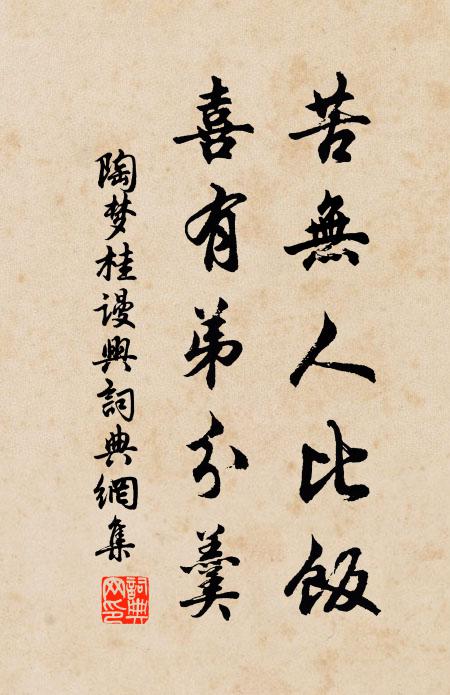 苦無人比飯
喜有弟分羹
陶梦桂谩興詞典網集
詞典網印